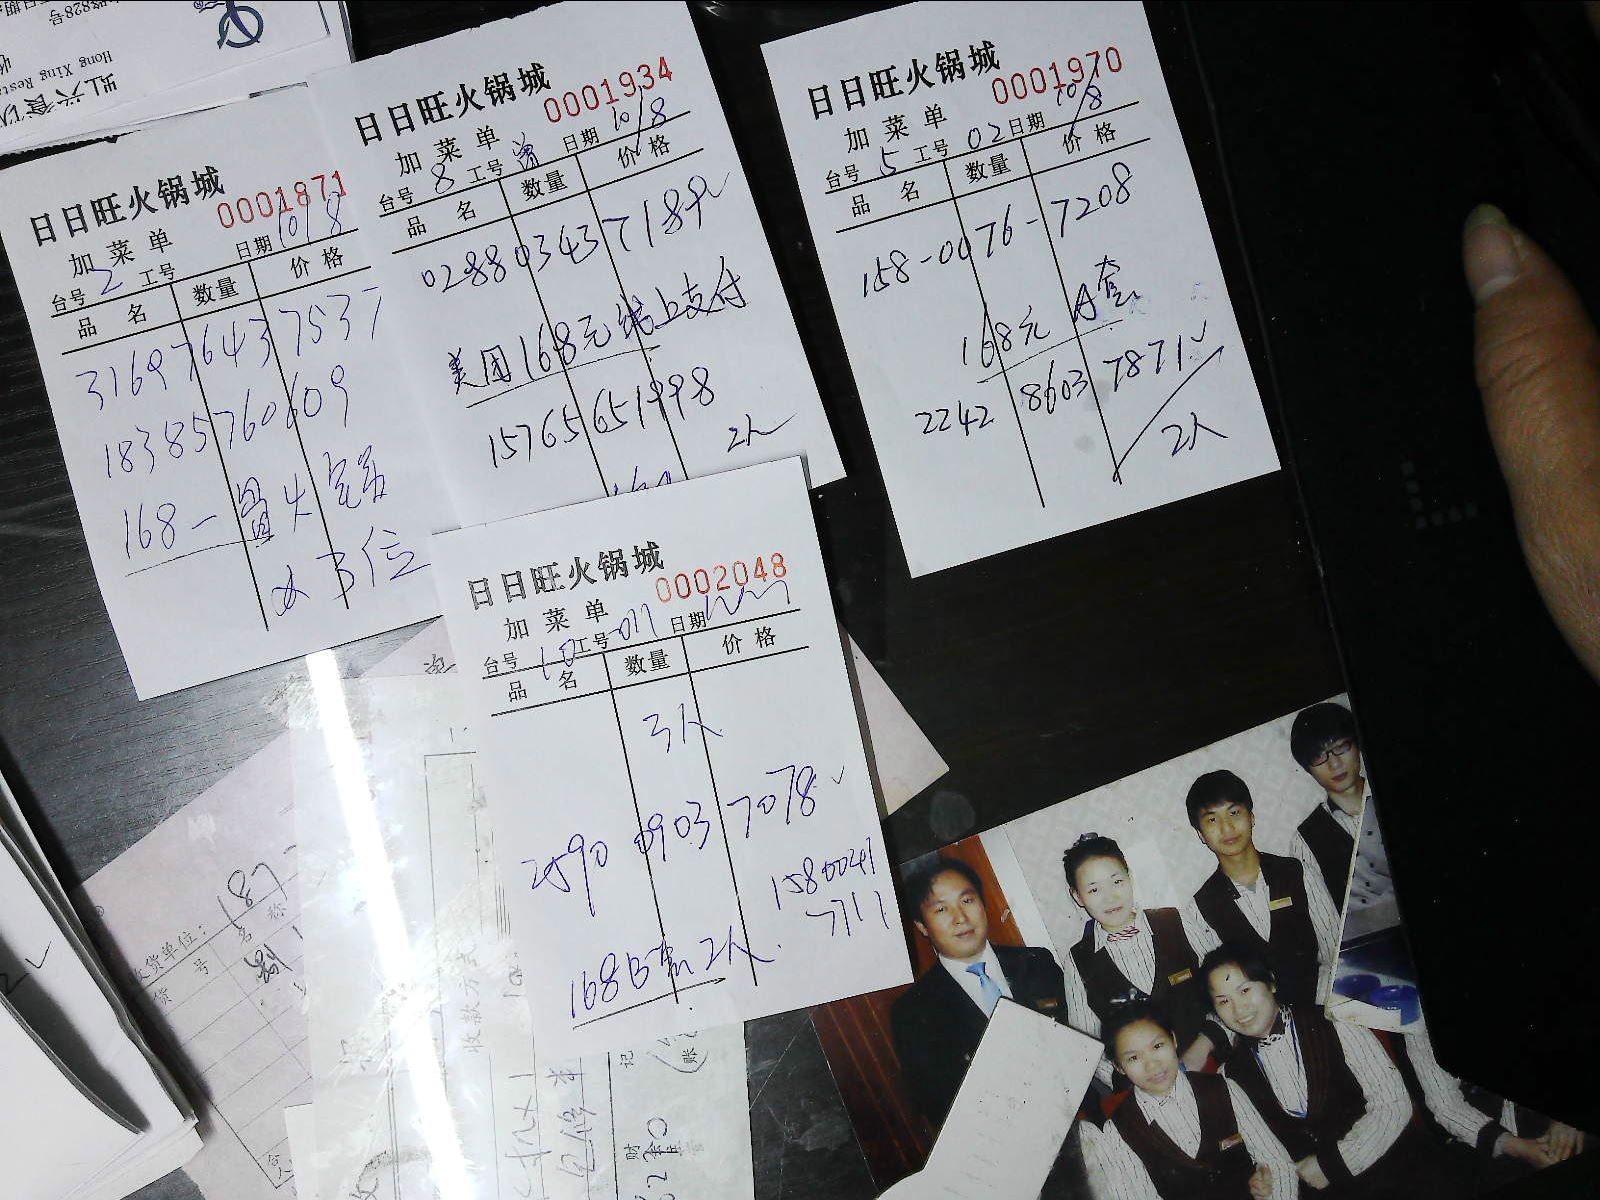 日日旺火锅城
0001871
加菜单
日期 10/8
台号 2 工号
品名 数量 价格
3169 7643 7537
18385760609
168一
B位
日日旺火锅城
0001934
加菜单
日期 10/8
台号 8 工号
品名 数量 价格
0288 0343 7189
美团168元线上支付
15765651998
2人
日日旺火锅城
0001970
加菜单
日期 10/8
台号 5 工号 02
品名 数量 价格
158-0076-7208
168元 A套
2242 8603 7871
2人
日日旺火锅城
0002048
加菜单
台号 10 工号 011 日期
品名 数量 价格
3人
2590 0903 7078
15800241
7711
168B套 2人
Hong Xing Resta
路828号
收货单位:
货号
收款方式